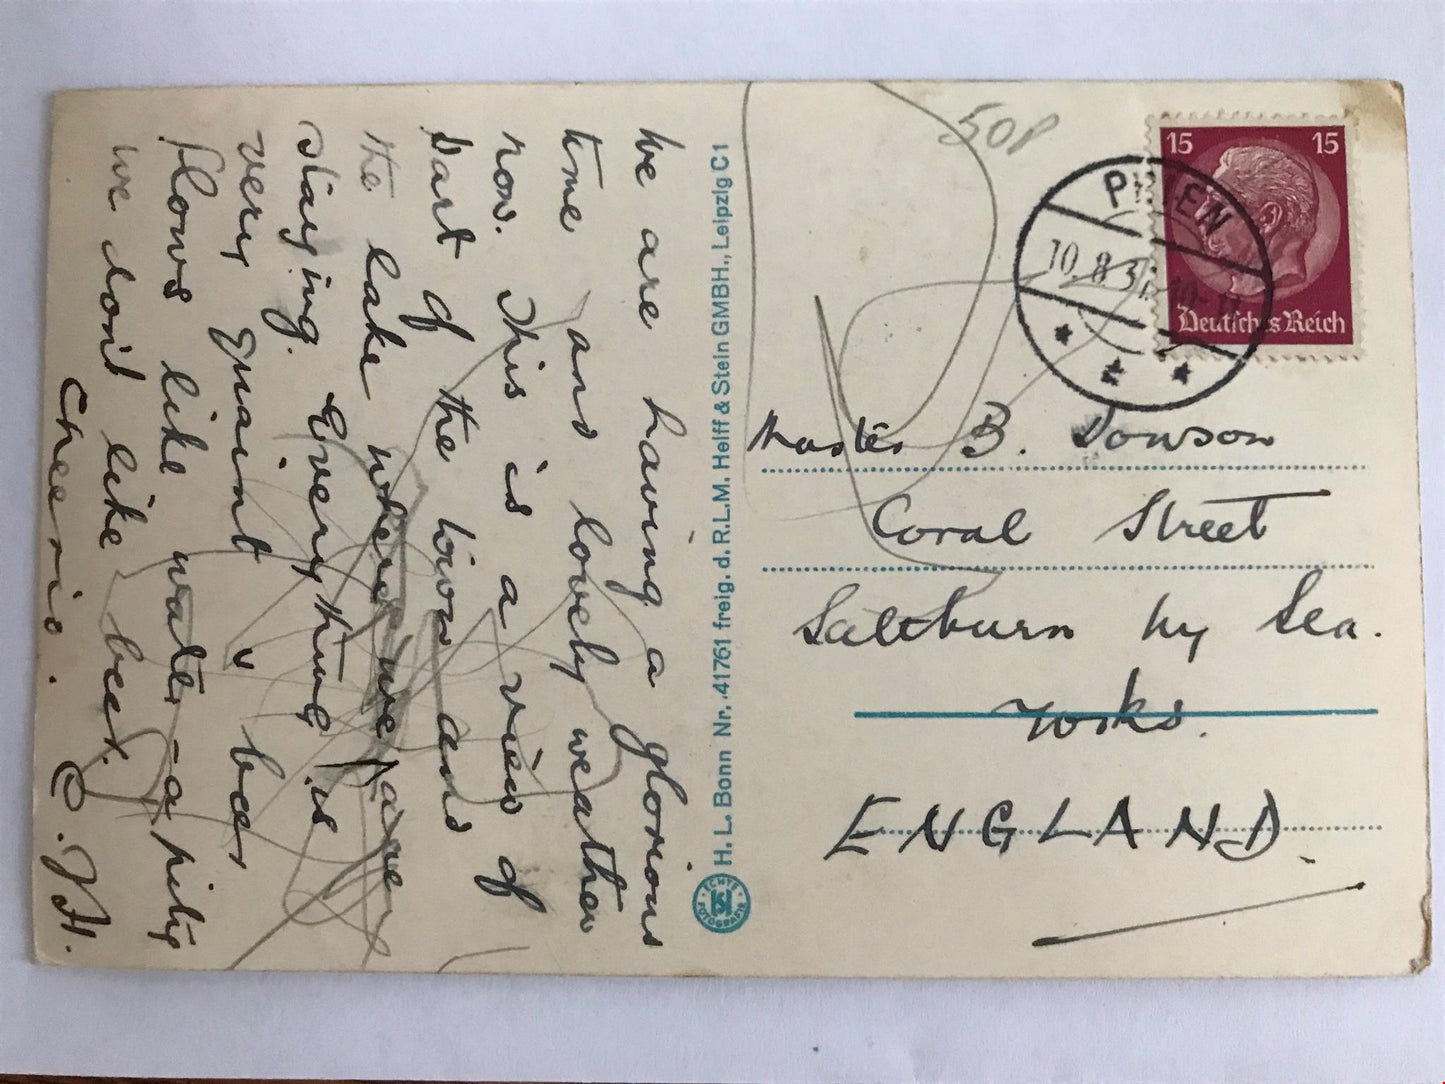 We are having a glorious
time and lovely weather
now. This is a view of
part of the town and
the lake where we are
staying. Everything is
very quaint & beer
flows like water – a pity
we don't like beer.
Cheerio.
H. L. Bonn Nr. 41761 freig. d. R.L.M. Helff & Stein GMBH., Leipzig C1
ECHTE FOTOGRAFIE
50P
15 15
Deutsches Reich
PRIEN
10.8.3
Master B. Dowson
Coral Street
Saltburn by Sea.
Yorks.
ENGLAND.